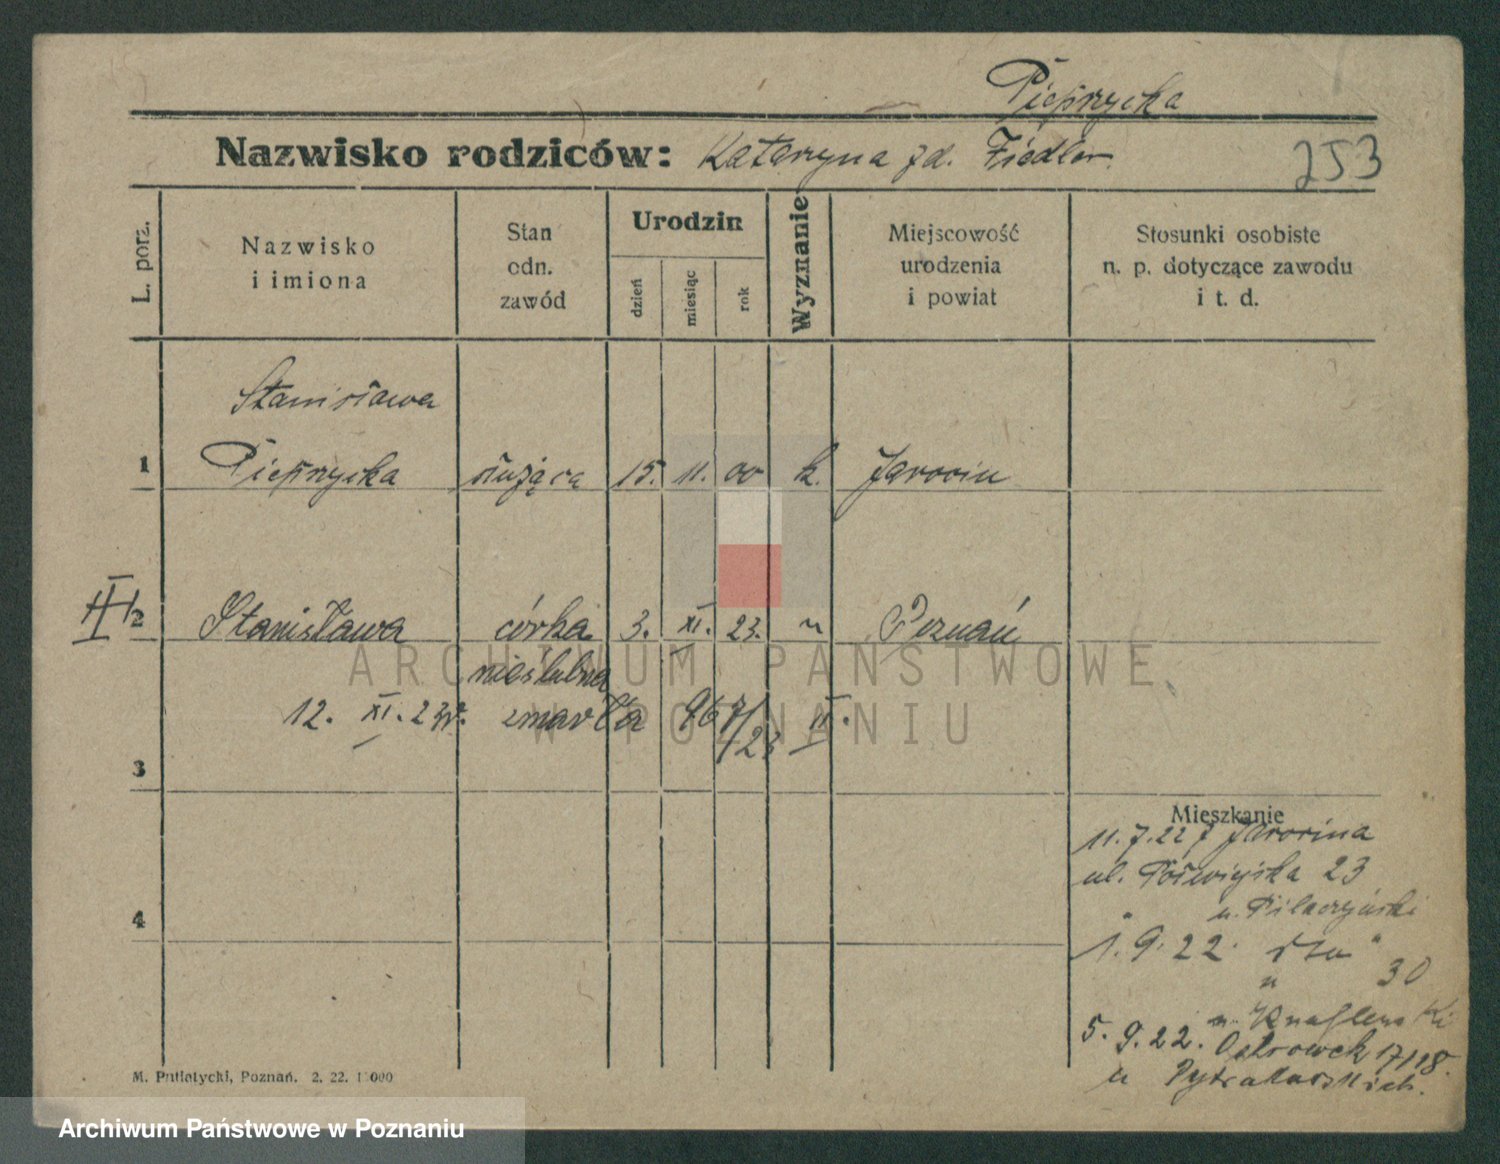 Pieprzycka
Nazwisko rodziców: Katarzyna zd. Fiedler
253
L. porz.
Nazwisko
i imiona
Stan
odn.
zawód
Urodzin
dzień
miesiąc
rok
Wyznanie
Miejscowość
urodzenia
i powiat
Stosunki osobiste
n. p. dotyczące zawodu
i t. d.
Stanisława
1 Pieprzycka służąca 15. 11. 00 k. Jarocin
2 Stanisława córka 3. XI. 23. " Poznań
nieślubna
12. XI. 23r. zmarła 967/23 II.
3
Mieszkanie
11.7.22 z Jarocina
ul. 23
4
u.
1.9.22.
" 30
u.
5.9.22. Ostrówek 17/18.
u
M. Putiatycki, Poznań. 2. 22. 1000
ARCHIWUM PAŃSTWOWE
W POZNANIU
Archiwum Państwowe w Poznaniu